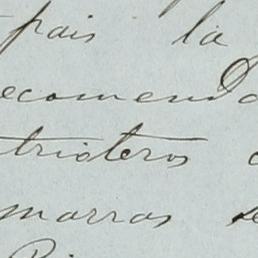 pais la
ecomenda
trioteros
marras se